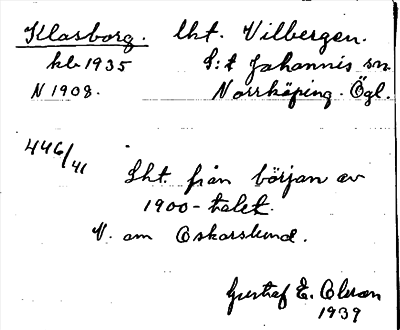 Klasborg. lht. Vilbergen.
kb 1935 S:t Johannis sn.
N 1908. Norrköping. Ögl.
446/41 Lht från början av
1900-talet.
N. om Oskarslund.
Gustaf E. Olsson
1939